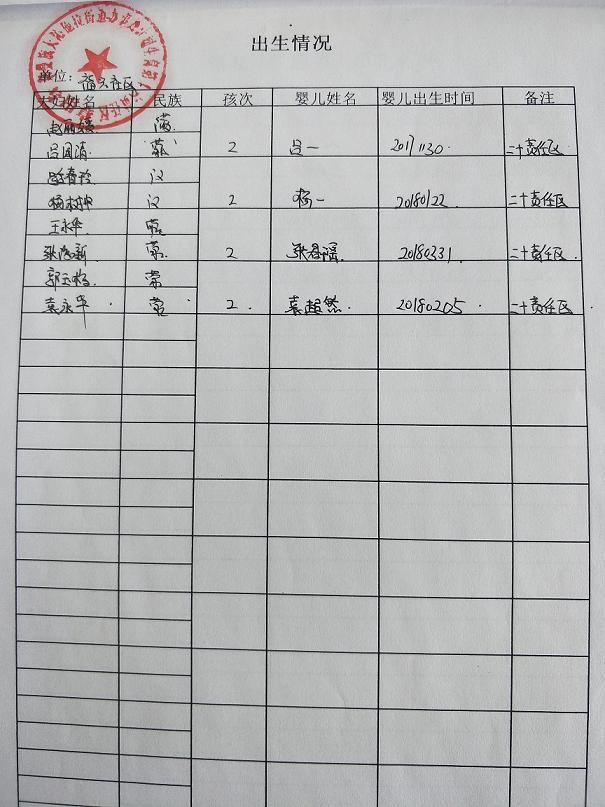 出生情况
单位: 社区
夫妇姓名 民族 孩次 婴儿姓名 婴儿出生时间 备注
赵丽 满
吕国清 蒙 2 吕一 20171130 二十责任区
汉
杨 汉 2 杨一 20180122 二十责任区
王永华 蒙
张 新 蒙 2 张 瑶 20180331 二十责任区
郭玉梅 蒙
袁永华 蒙 2 袁超然 20180205 二十责任区